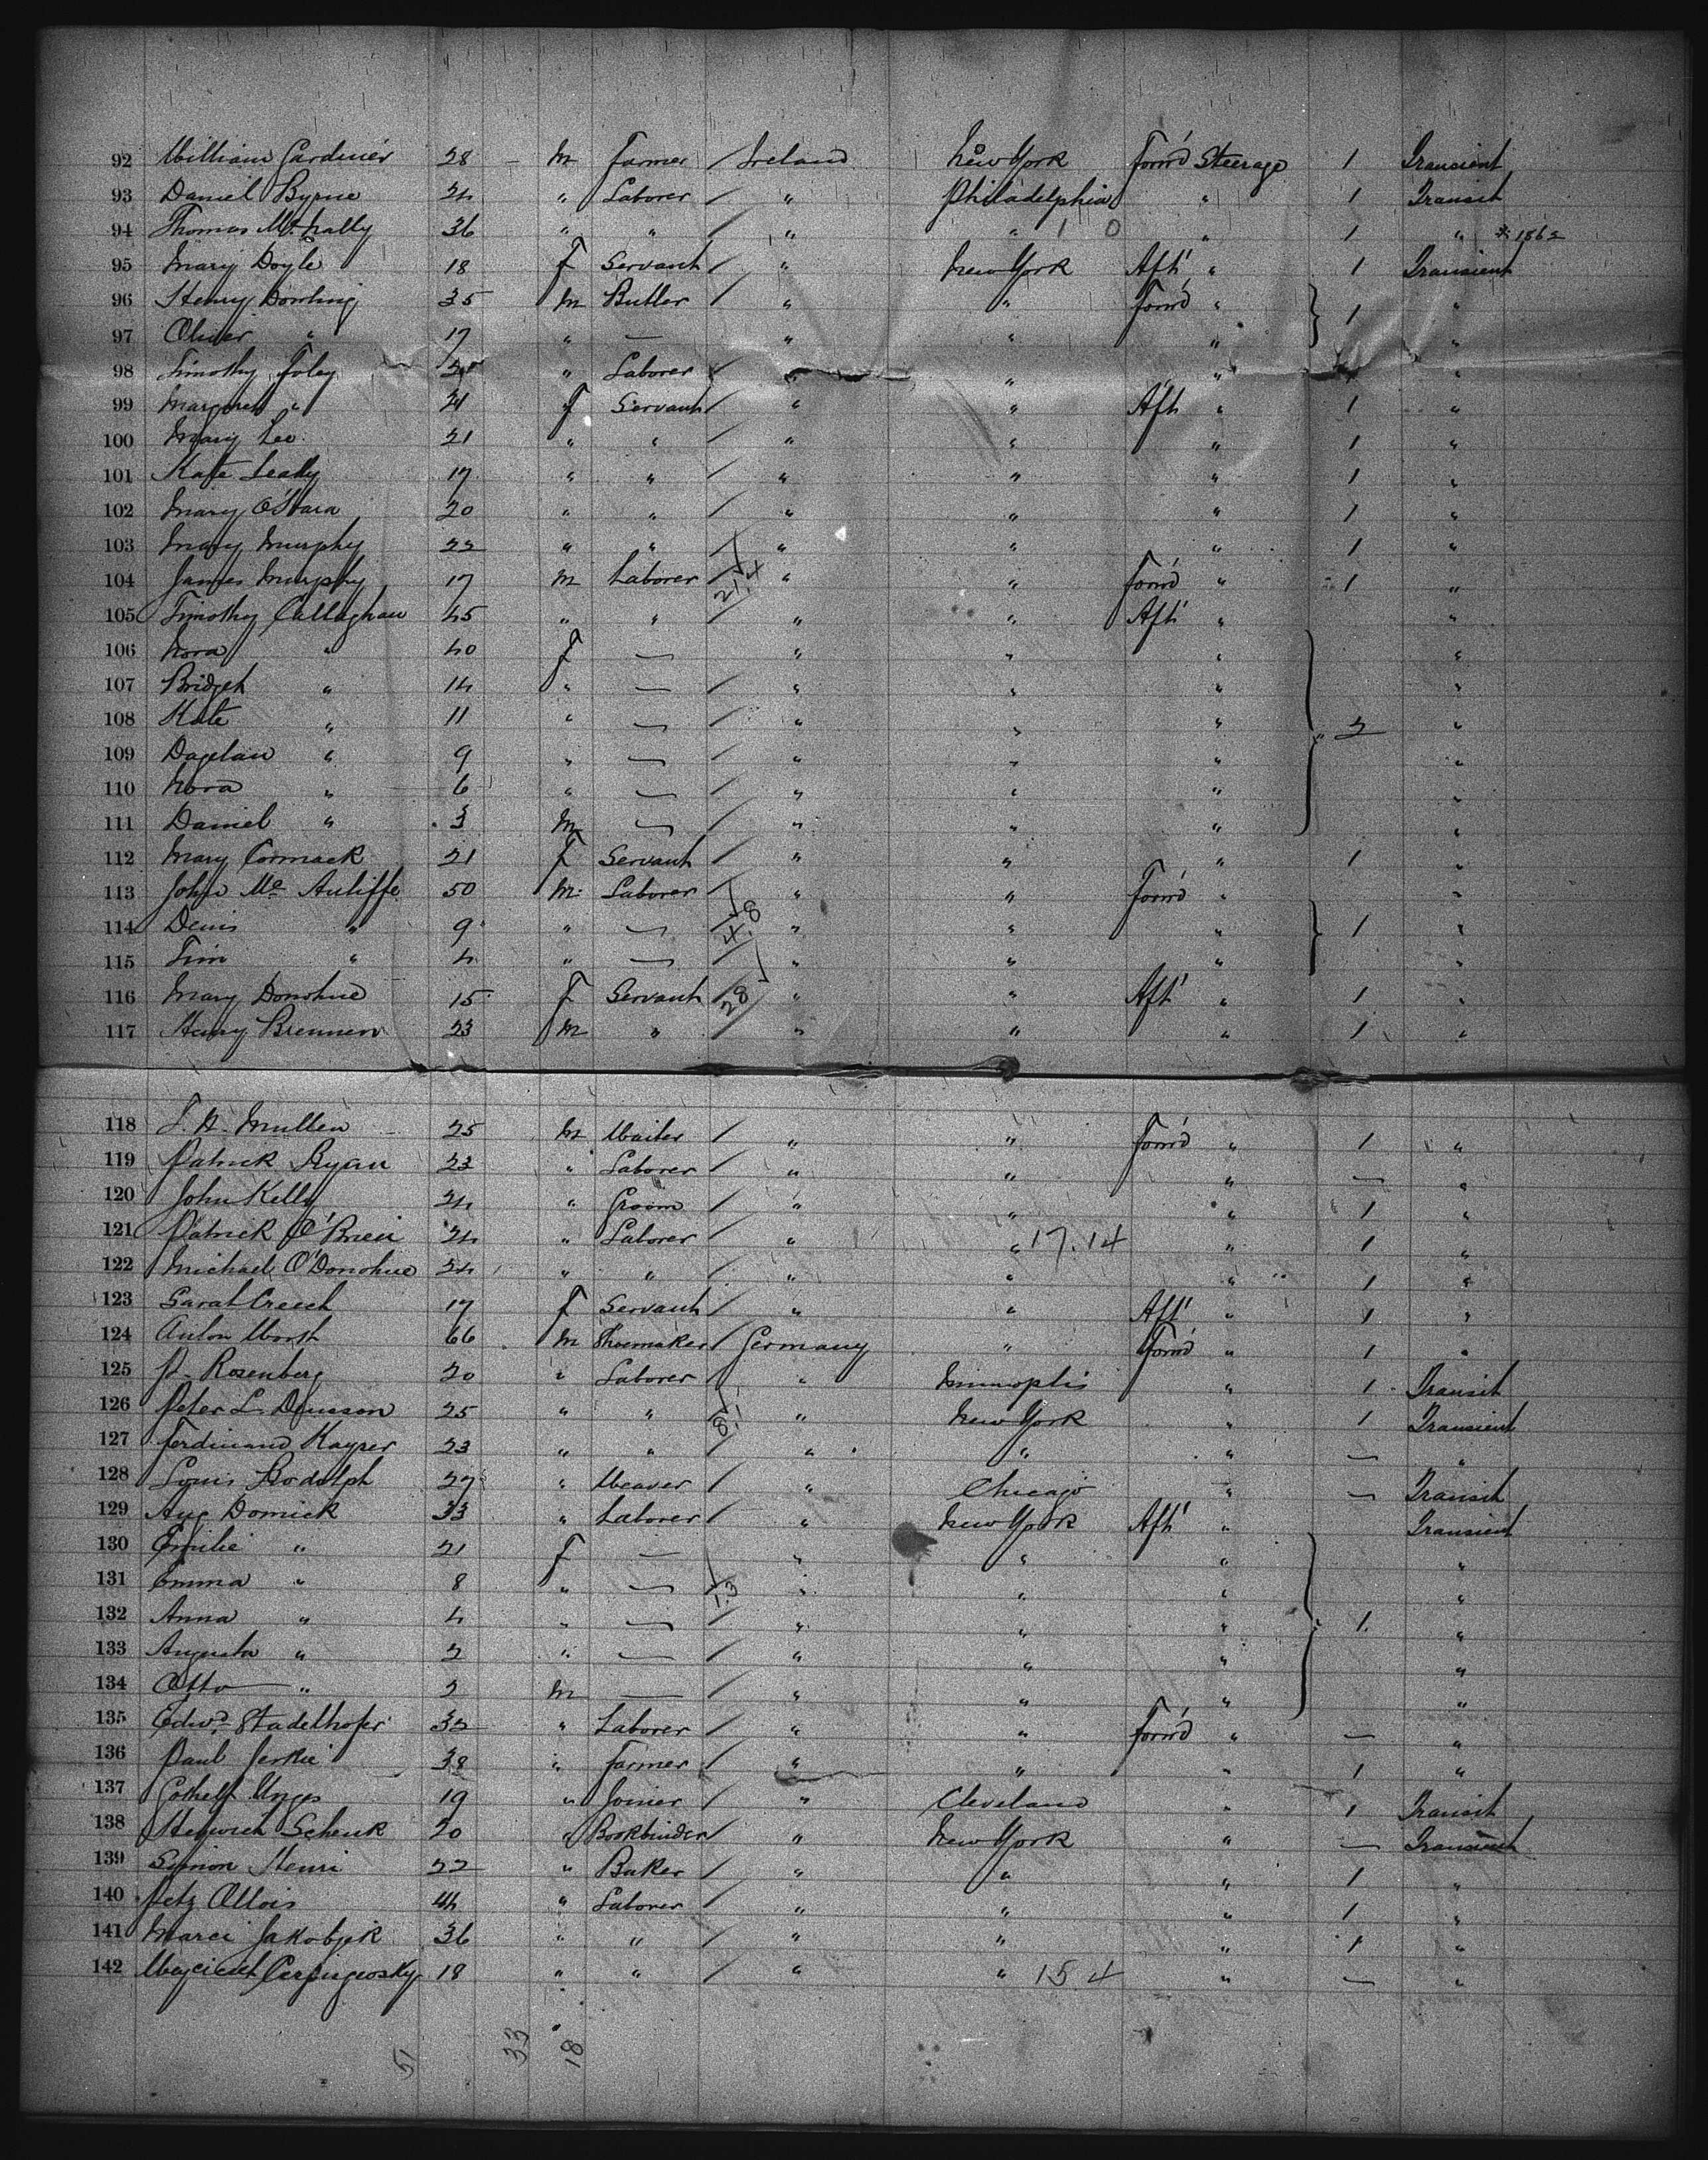 92 William Gardiner 28 – M Farmer / Ireland New York Forrd Steerage 1 Transient
93 Daniel Byrne 24 " Laborer / " Philadelphia " 1 Transit
94 Thomas 36 " " / " " 1 0 " 1 " 1862
95 Mary Doyle 18 F Servant / " New York Aft " 1 Transient
96 Henry Dowling 35 M Butler / " " Forrd " 1 "
97 Oliver " 17 " — " " " "
98 Timothy Foley " Laborer / " " " "
99 Margaret " 21 F Servant / " " Aft " 1 "
100 Mary Lee 21 " " / " " " 1 "
101 Kate Leahy 17 " " / " " " 1 "
102 Mary O'Hara 20 " " / " " " 1 "
103 Mary Murphy 22 " " / " " " 1 "
104 James Murphy 17 M Laborer / 21.4 " " Forrd " 1 "
105 Timothy Callaghan 45 " " / " " Aft " "
106 Nora " 40 F — " " " "
107 Bridget " 14 " — / " " " "
108 Kate " 11 " — / " " " 2 "
109 " 9 " — / " " " "
110 Nora " 6 " — / " " " "
111 Daniel " 3 M — / " " " "
112 Mary Cormack 21 F Servant / " " " 1 "
113 John Mc Auliffe 50 M Laborer / " " Forrd " "
114 Denis " 9 " — / 4.8 " " " 1 "
115 Tim " 4 " — / " " " "
116 Mary Donohue 15 F Servant / 28 " " Aft " 1 "
117 Henry Brennen 23 M " / " " " 1 "
118 Mullen 25 M Waiter / " " Forrd " 1 "
119 Patrick Ryan 23 " Laborer / " " " — "
120 John Kelly 24 " Groom / " " " 1 "
121 Patrick O'Brien 24 " Laborer / " " 17.14 " 1 "
122 Michael O'Donohue 24 " " / " " " 1 "
123 Sarah Creech 17 F Servant / " " Aft " 1 "
124 Anton 66 M Shoemaker / Germany " Forrd " 1 "
125 Rosenberg 20 " Laborer / " " 1 Transit
126 Peter L. 25 " " / 8.1 " New York " 1 Transient
127 Ferdinand Kayser 23 " " / " " " — "
128 Louis Rodolph 27 " Weaver / " Chicago " — Transit
129 Aug Domick 33 " Laborer / " New York Aft " Transient
130 Emilie " 21 F — / " " " "
131 Emma " 8 " — / 1.3 " " " "
132 Anna " 4 " — / " " " 1 "
133 Augusta " 2 " — / " " " "
134 Otto " 2 M — / " " " "
135 Edwd Stadelhofer 32 " Laborer / " " Forrd " — "
136 Paul 38 " Farmer / " " " 1 "
137 Gothelf 19 " Joiner / " Cleveland " 1 Transit
138 Schenk 20 " Bookbinder / " New York " — Transient
139 Simon Henri 22 " Baker / " " " 1 "
140 44 " Laborer / " " " 1 "
141 36 " " / " " " 1 "
142 18 " " / " " 15 4 " — "
51 33 18